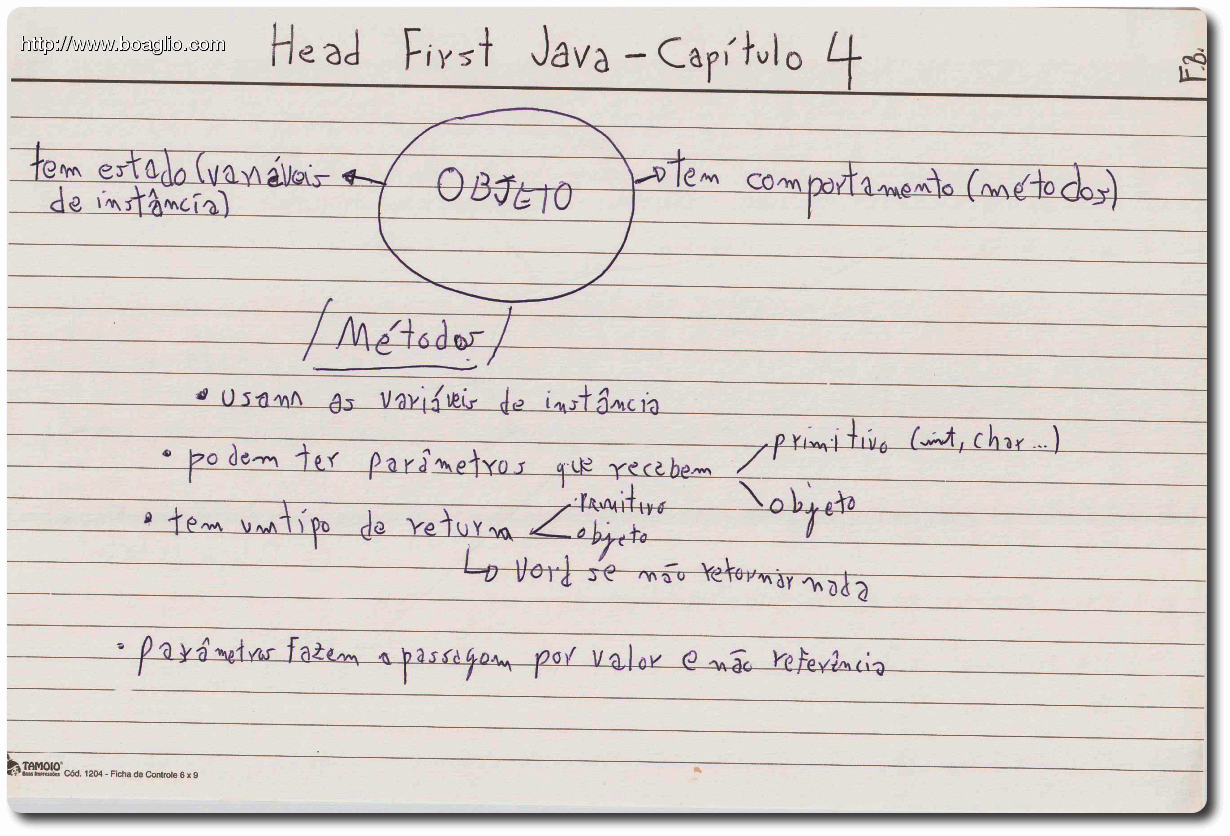 http://www.boaglio.com
Head First Java - Capítulo 4
F.B.
tem estado (variáveis
de instância)
OBJETO
tem comportamento (métodos)
Métodos
• usam as variáveis de instância
• podem ter parâmetros que recebem
primitivo (int, char...)
objeto
• tem um tipo de return
primitivo
objeto
void se não retornar nada
• parâmetros fazem a passagem por valor e não referência
TAMOIO
Cód. 1204 - Ficha de Controle 6 x 9